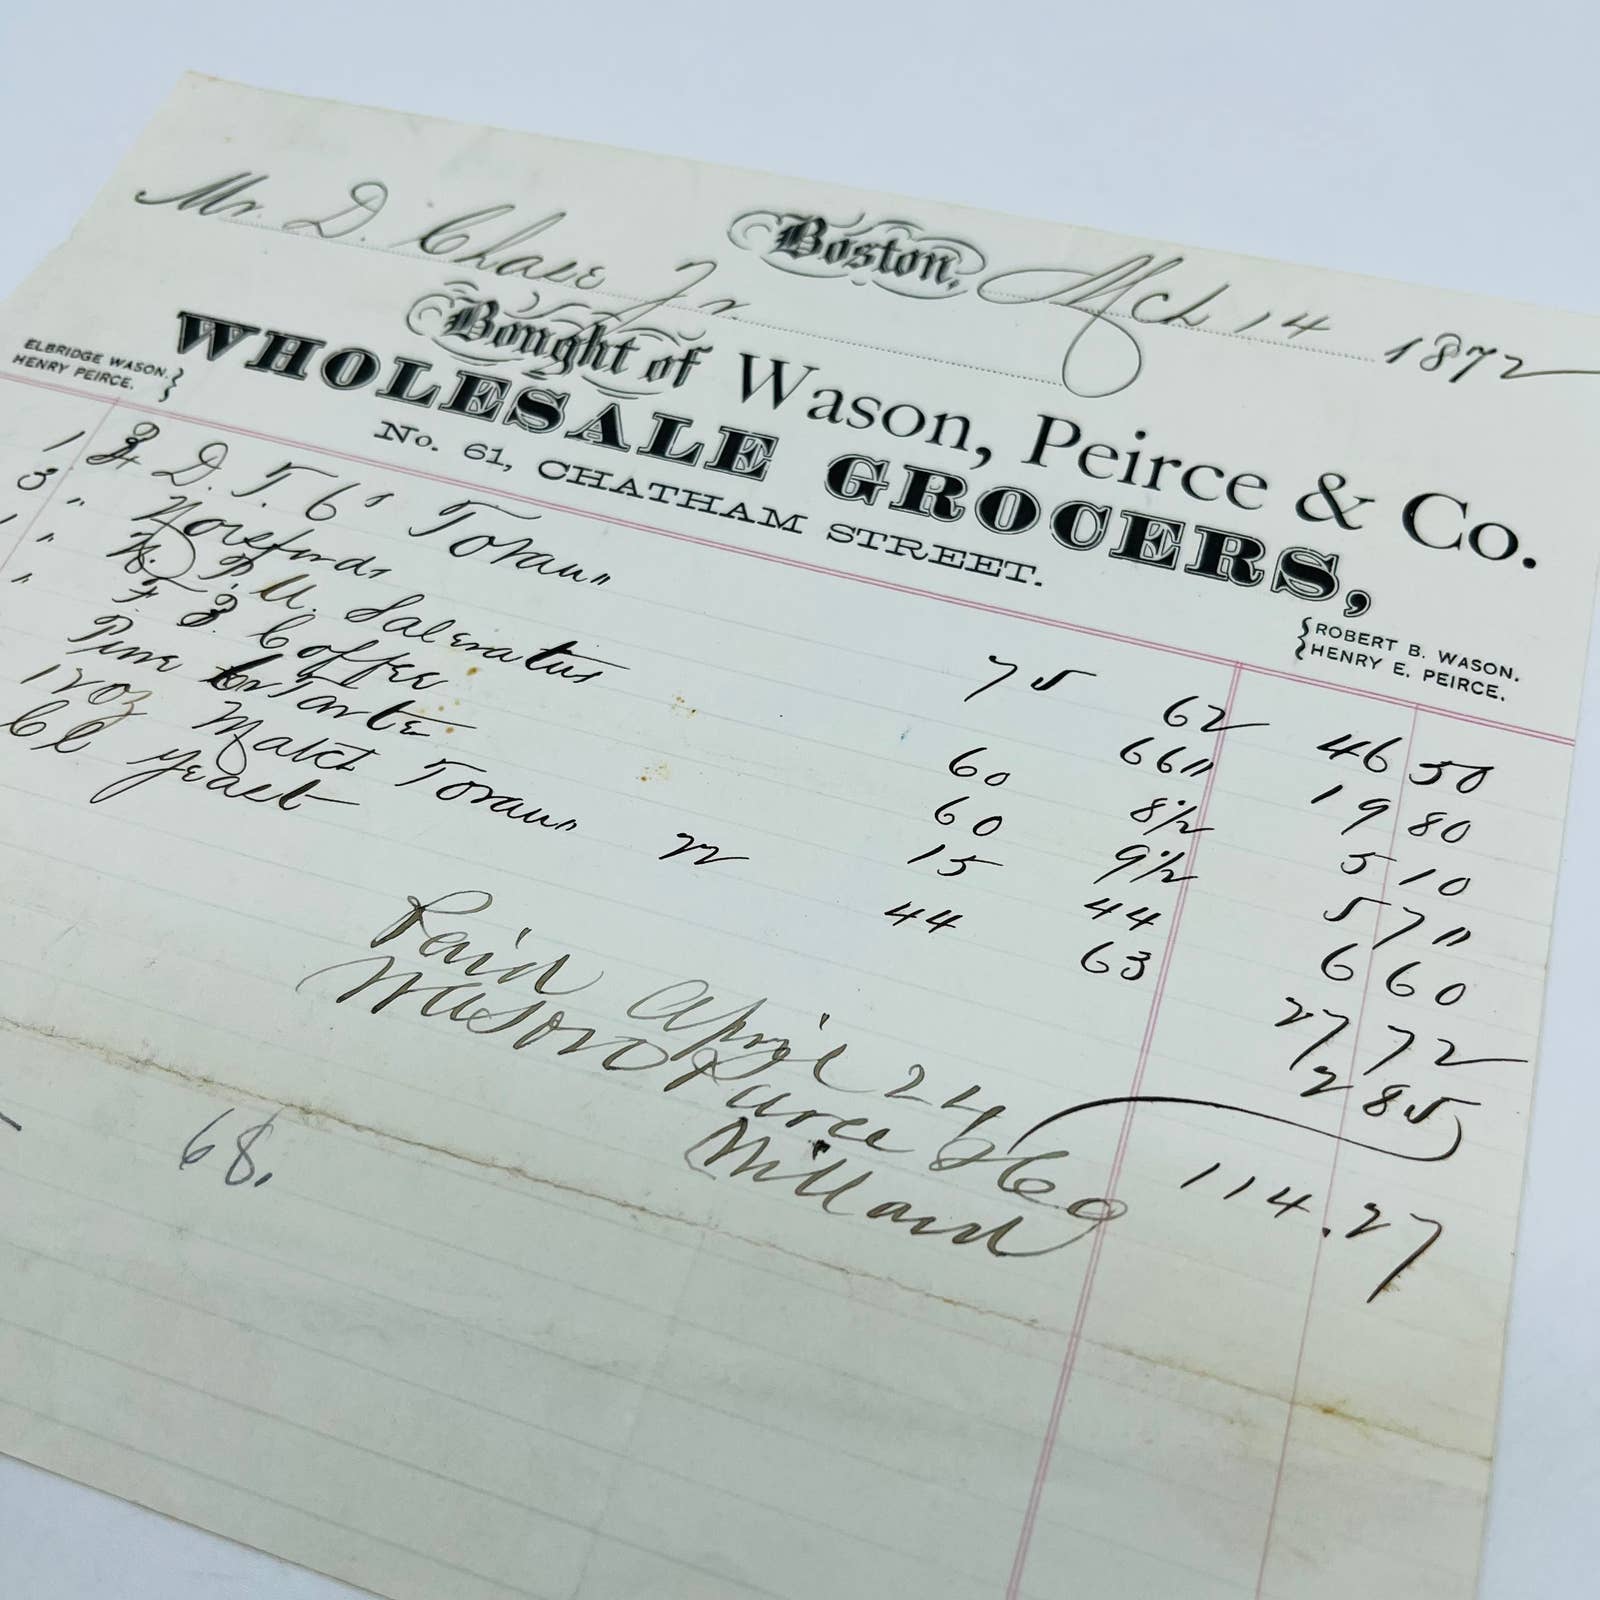 Boston, Mch 14 1872
Mr. D. Chase Jr.
Bought of Wason, Peirce & Co.
WHOLESALE GROCERS,
ELBRIDGE WASON.
HENRY PEIRCE.
ROBERT B. WASON.
HENRY E. PEIRCE.
No. 61, CHATHAM STREET.
1 D. T. 6s 75 62 46 50
3 " 60 66 " 19 80
1 " Saleratus 60 8 1/2 5 10
" Coffee 60 9 1/2 5 7 "
Pure Cr Tarta 15 44 6 60
Match 22 44 63 27 72
Yeast 2 85
114.27
Paid April 24
Wason Peirce & Co
Millard
68.